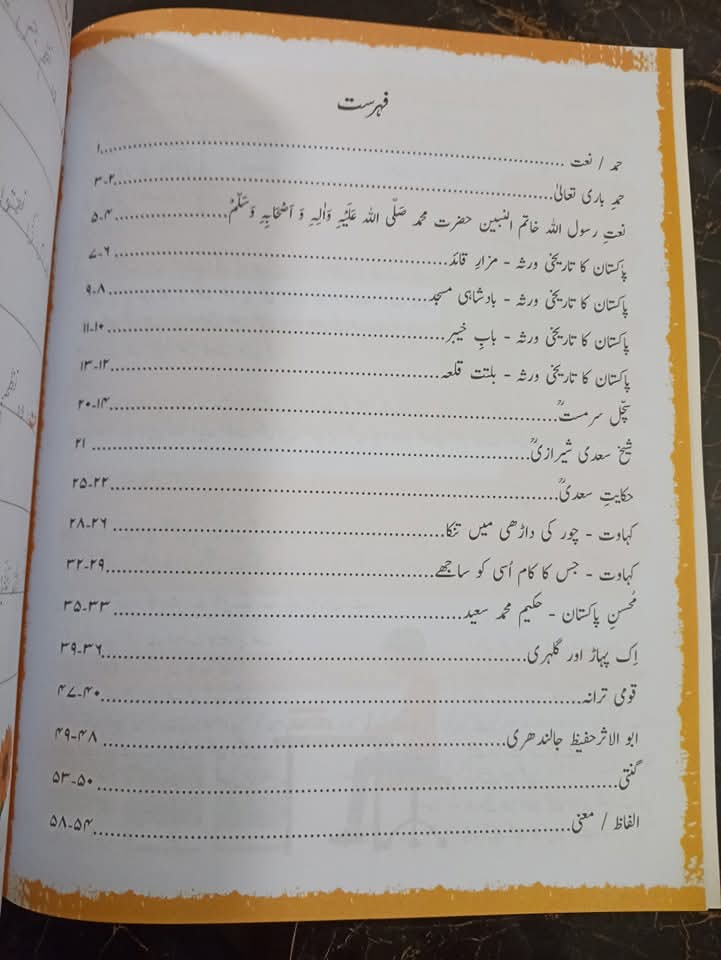 فہرست
حمد / نعت ..................۱
حمدِ باری تعالیٰ..................۲-۳
نعتِ رسول اللہ خاتم النبیین حضرت محمد صَلَّی اللہ عَلَیْہِ وَاٰلِہٖ وَ اَصْحَابِہٖ وَسَلَّمْ..................۴-۵
پاکستان کا تاریخی ورثہ - مزارِ قائد..................۶-۷
پاکستان کا تاریخی ورثہ - بادشاہی مسجد..................۸-۹
پاکستان کا تاریخی ورثہ - بابِ خیبر..................۱۰-۱۱
پاکستان کا تاریخی ورثہ - بلتت قلعہ..................۱۲-۱۳
سچّل سرمستؒ..................۱۴-۲۰
شیخ سعدی شیرازیؒ..................۲۱
حکایتِ سعدیؒ..................۲۲-۲۵
کہاوت - چور کی داڑھی میں تنکا..................۲۶-۲۸
کہاوت - جس کا کام اُسی کو ساجھے..................۲۹-۳۲
مُحسنِ پاکستان - حکیم محمد سعید..................۳۳-۳۵
اِک پہاڑ اور گلہری..................۳۶-۳۹
قومی ترانہ..................۴۰-۴۷
ابو الاثرحفیظ جالندھری..................۴۸-۴۹
گنتی..................۵۰-۵۳
الفاظ / معنی..................۵۴-۵۸